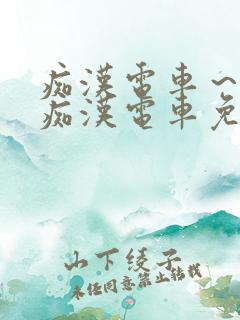 痴漢電車～
痴漢電車免
山下綾子
未经同意禁止转载